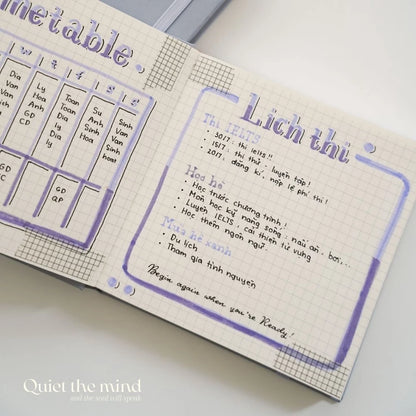 metable
W T F S S
Dia Ly Toan Su Sinh
Van Hoa Toan Anh Van
Van Anh Dia Sinh Van
sinh GD Ly Hoa Sinh
ch CD Dia hoat
ly
GD GD
QP
Lịch thi
Thi IELTS
• 30/7: thi ielts!!
• 15/7: thi thử - luyện tập!
• 20/7: đăng kí, nộp lệ phí thi!
Học hè
• Học trước chương trình!
• Môn học kỹ năng sống: nấu ăn, bơi...
• Luyện IELTS: cải thiện từ vựng
• Học thêm ngôn ngữ
Mùa hè xanh
• Du lịch
• Tham gia tình nguyện
Begin again when you're Ready!
Quiet the mind
and the soul will speak